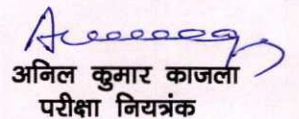 अनिल कुमार काजला
परीक्षा नियत्रंक